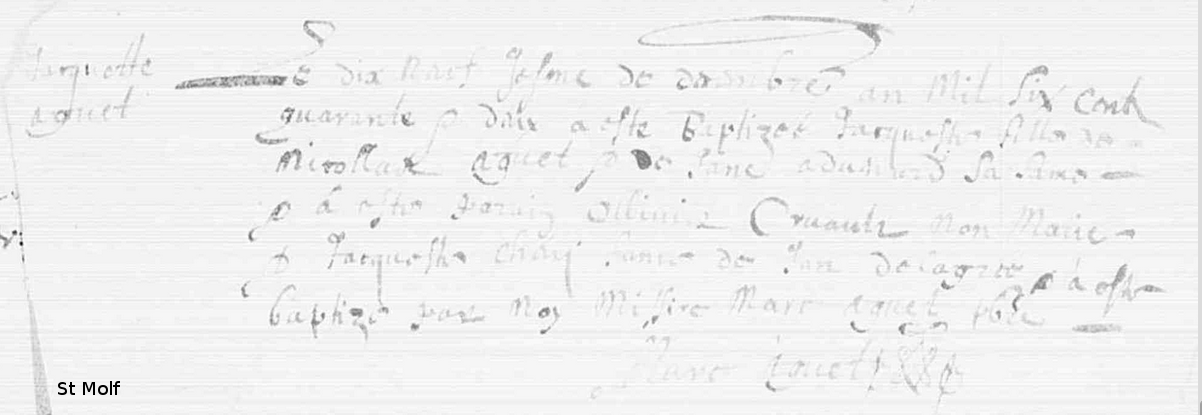 Jacquette
aguet
Le dix naef Jesme de decembre an Mil Six Cent
quarante & daix a este Baptizee Jacqueste fille de
Nicollas aguet & de Jane sa fame
& a este parain Ollivier Cruault non Marie
& Jacqueste fame de Jan & a este
baptizé par Moy Missire Marc aguet pbre
Marc aguet
St Molf